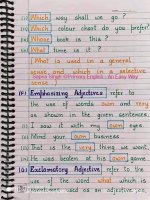 (i) Which way shall we go?
(ii) Which colour chart do you prefer?
(iii) Whose book is this?
(iv) What time is it?
[What is used in a general
sense and which in a selective
sense.]
(F) Emphasizing Adjectives refer to
the use of words own and very
as shown in the given sentences.
(i) I saw it with my own eyes.
(ii) Mind your own business.
(iii) That is the very thing we want.
(iv) He was beaten at his own game.
(G) Exclamatory Adjective refer to
the use of the word what which is
sometimes used as an adjective